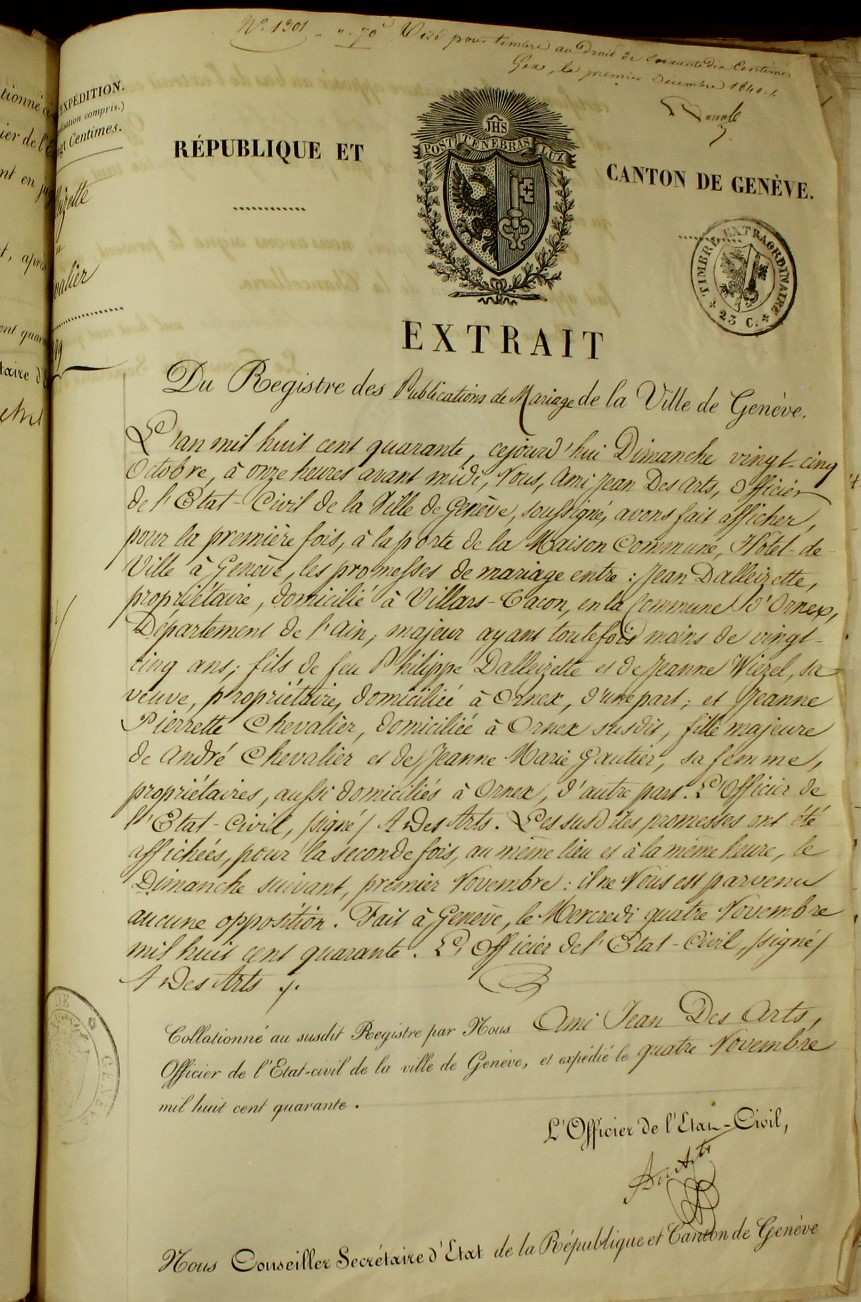 Nº 1301 - ". 70ᶜ Visé pour timbre au Droit de soixante dix Centimes
Gex, le premier Décembre 1840.
tionné
ier de l'E
nt en
t, après
ont quar
taire d
EXPÉDITION.
compris.)
Centimes.
zette
valier
RÉPUBLIQUE ET
JHS
POST TENEBRAS LUX
CANTON DE GENÈVE.
TIMBRE EXTRAORDINAIRE
* 25 C. *
EXTRAIT
Du Registre des Publications de Mariage de la Ville de Genève.
L'an mil huit cent quarante, cejourd'hui Dimanche vingt-cinq
Octobre, à onze heures avant midi, Nous, Ami Jean Des Arts, Officier
de l'Etat-Civil de la Ville de Genève, soussigné, avons fait afficher,
pour la première fois, à la porte de la Maison Commune, Hôtel-de-
Ville à Genève, les promesses de mariage entre : Jean Dalleizette,
propriétaire, domicilié à Villars-Tacon, en la Commune d'Ornex,
Département de l'Ain, majeur ayant toutefois moins de vingt-
cinq ans ; fils de feu Philippe Dalleizette et de Jeanne Wiezel, sa
veuve, propriétaire, domiciliée à Ornex, d'une part ; et Jeanne
Pierrette Chevalier, domiciliée à Ornex susdit, fille majeure
de André Chevalier et de Jeanne Marie Gautier, sa femme,
propriétaires, aussi domiciliés à Ornex, d'autre part. L'Officier de
l'Etat-Civil, /signé/ A Des Arts. Les susdites promesses ont été
affichées, pour la seconde fois, au même lieu et à la même heure, le
Dimanche suivant, premier Novembre : il ne Nous est parvenu
aucune opposition. Fait à Genève, le Mercredi quatre Novembre
mil huit cent quarante. L'Officier de l'Etat-Civil, /signé/
A Des Arts
Collationné au susdit Registre par Nous Ami Jean Des Arts,
Officier de l'Etat-civil de la ville de Genève, et expédié le quatre Novembre
mil huit cent quarante.
L'Officier de l'Etat-Civil,
Des Arts
Nous Conseiller Secrétaire d'Etat de la République et Canton de Genève